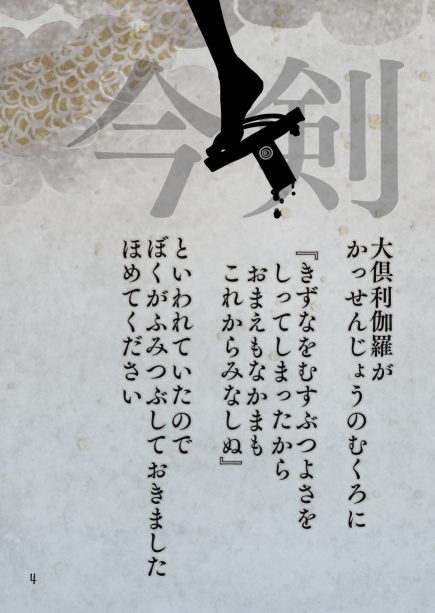 今剣
大倶利伽羅が
かっせんじょうのむくろに
『きずなをむすぶつよさを
しってしまったから
おまえもなかまも
これからみなしぬ』
といわれていたので
ぼくがふみつぶしておきました
ほめてください
4